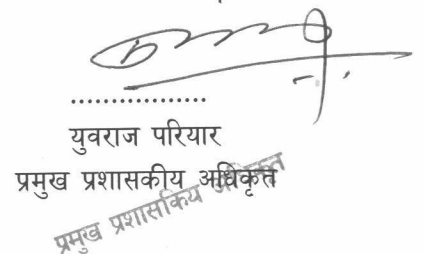 ..................
युवराज परियार
प्रमुख प्रशासकीय अधिकृत
प्रमुख प्रशासकिय अधिकृत